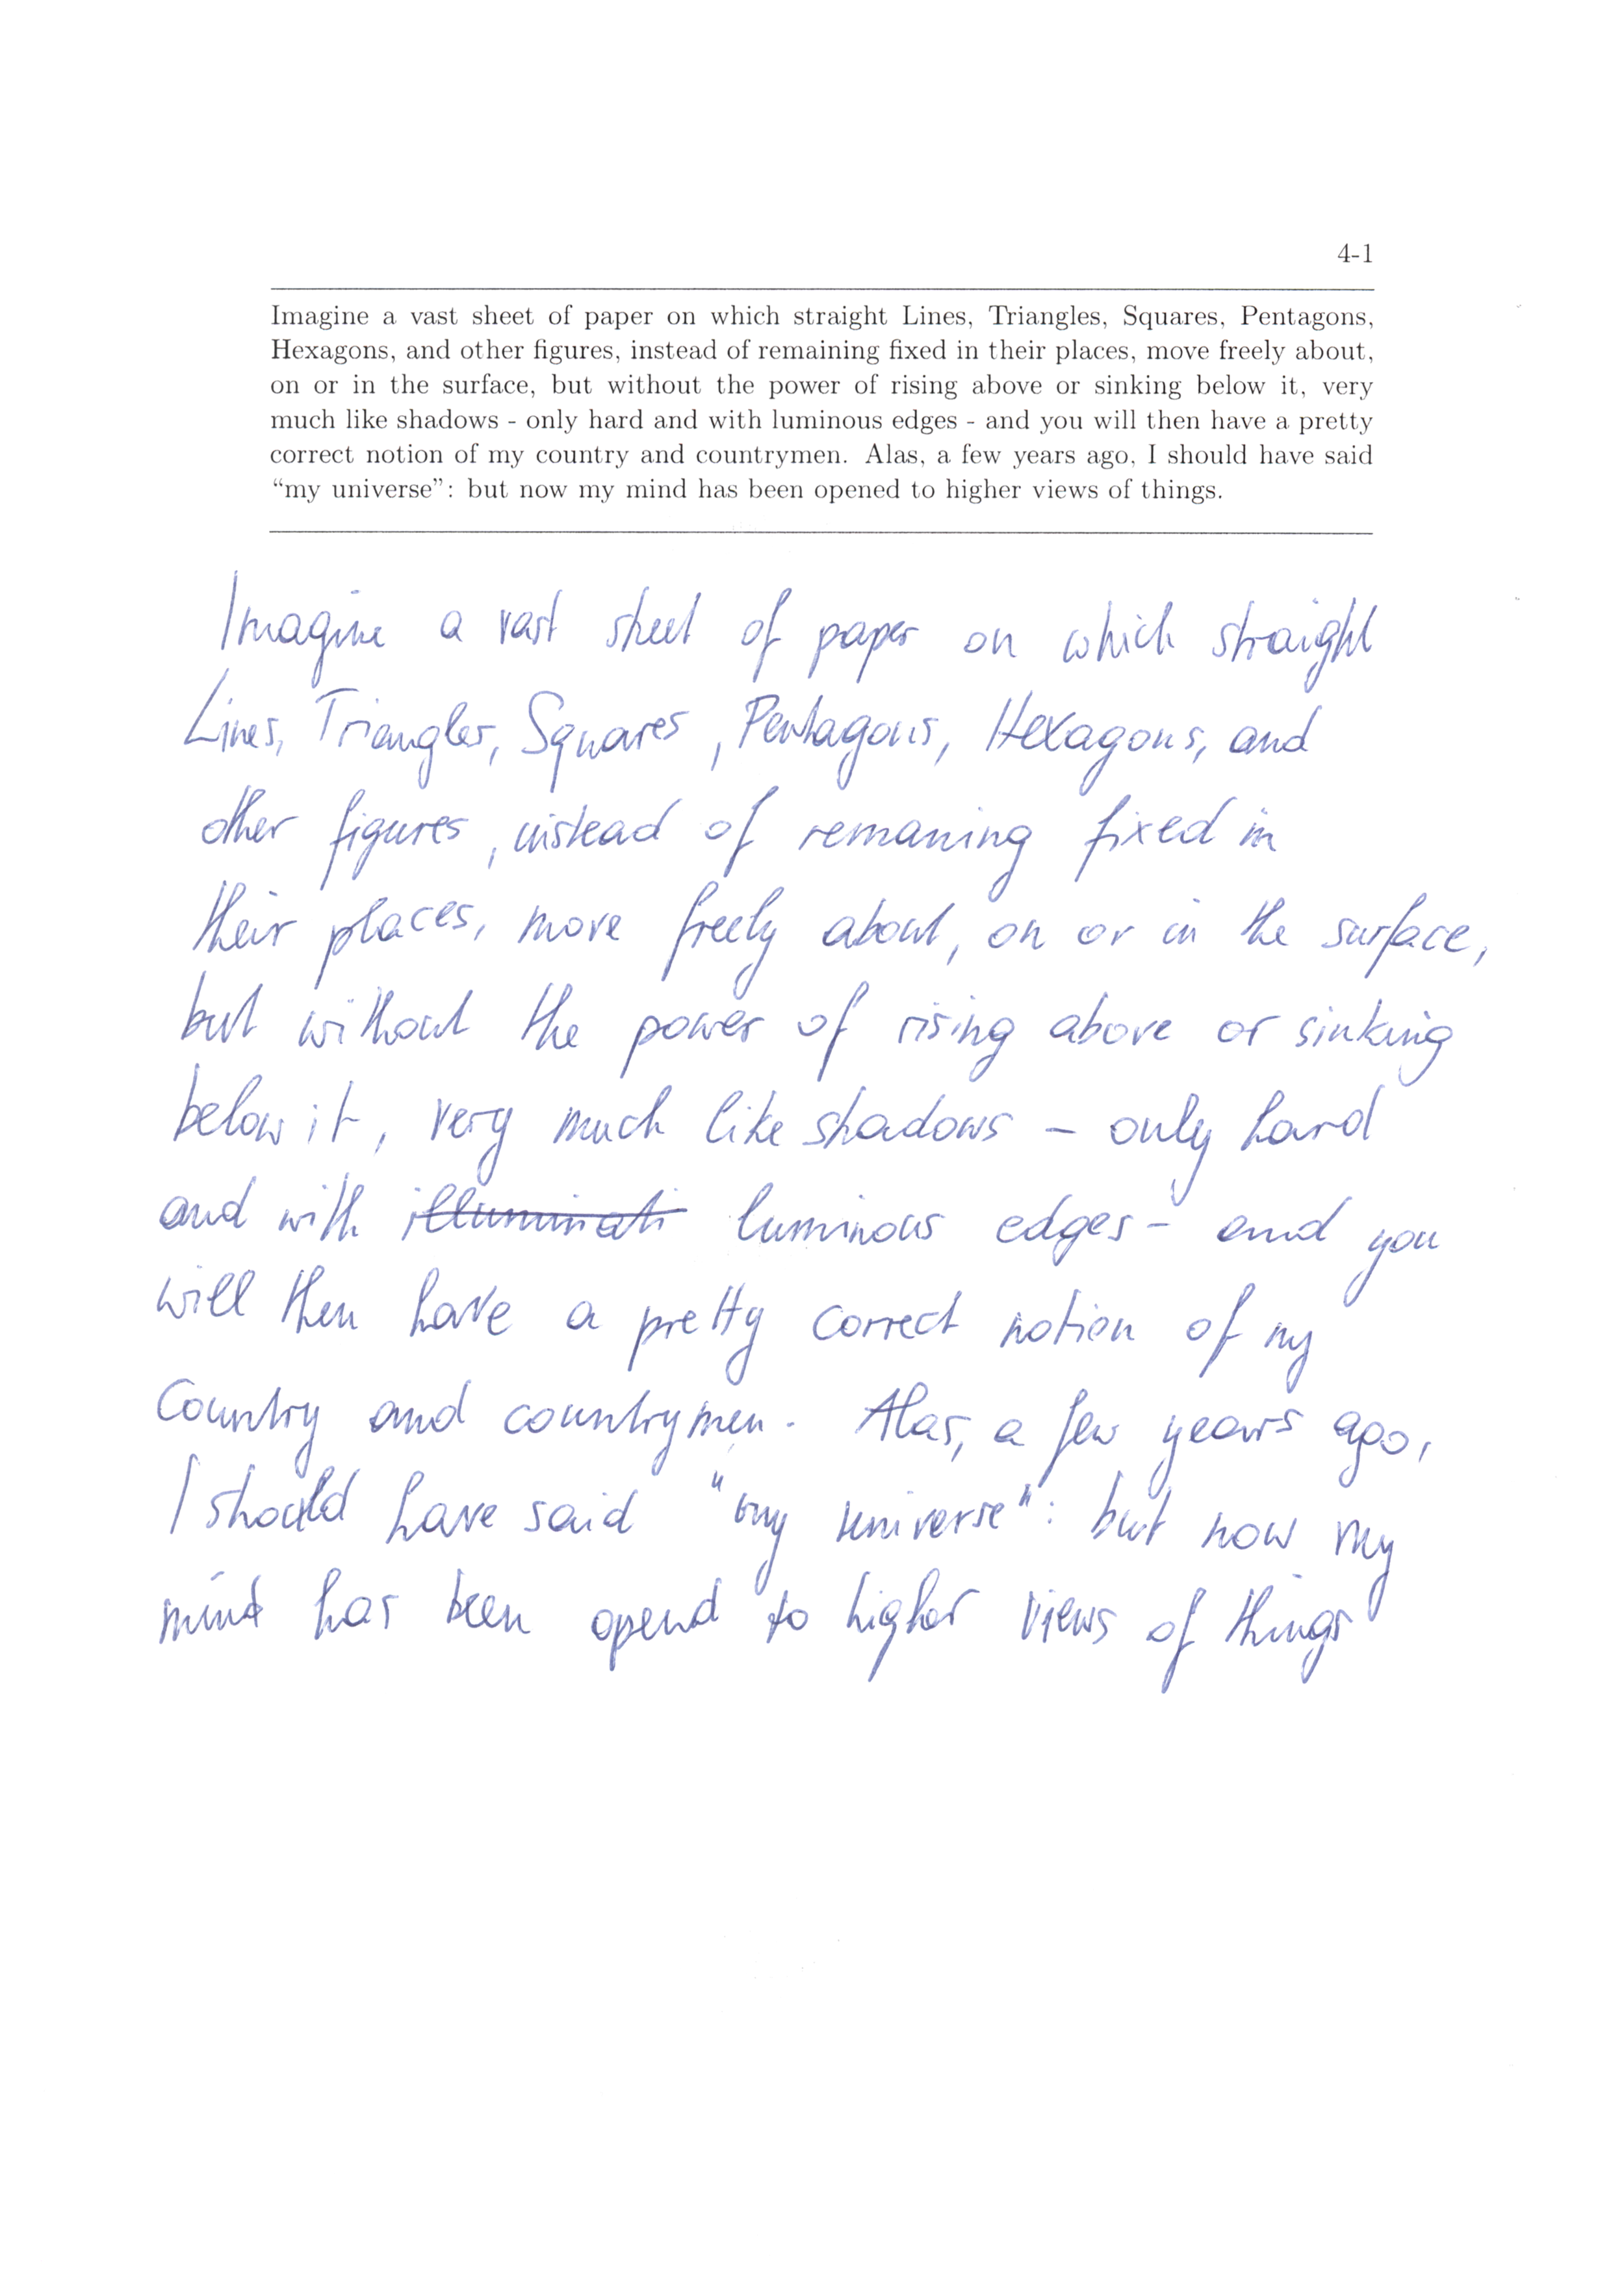 4-1
Imagine a vast sheet of paper on which straight Lines, Triangles, Squares, Pentagons,
Hexagons, and other figures, instead of remaining fixed in their places, move freely about,
on or in the surface, but without the power of rising above or sinking below it, very
much like shadows - only hard and with luminous edges - and you will then have a pretty
correct notion of my country and countrymen. Alas, a few years ago, I should have said
“my universe”: but now my mind has been opened to higher views of things.
Imagine a vast sheet of paper on which straight
Lines, Triangles, Squares, Pentagons, Hexagons, and
other figures, instead of remaning fixed in
their places, move freely about, on or in the surface,
but without the power of rising above or sinking
below it, very much like shadows - only hard
and with illuminati luminous edges - and you
will then have a pretty correct notion of my
Country and countrymen. Alas, a few years ago,
I should have said "my universe": but now my
mind has been opend to higher views of things